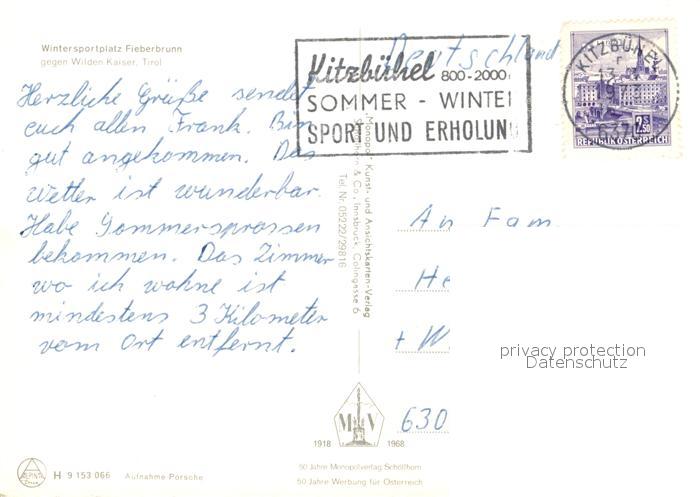 Wintersportplatz Fieberbrunn
gegen Wilden Kaiser, Tirol
Herzliche Grüße sendet
euch allen Frank. Bin
gut angekommen. Das
Wetter ist wunderbar.
Habe Sommersprossen
bekommen. Das Zimmer
wo ich wohne ist
mindestens 3 Kilometer
vom Ort entfernt.
Deutschland
Kitzbühel 800-2000
SOMMER - WINTE
SPORT UND ERHOLUN
KITZBÜHEL
2.50
REPUBLIK ÖSTERREICH
"Monopol" Kunst- und Ansichtskarten-Verlag
& Co., Innsbruck, Colingasse 6
Tel. Nr. 05222/29816
An Fam.
He
+ W.
630
privacy protection
Datenschutz
M V
1918 1968
50 Jahre Monopolverlag Schöllhorn
50 Jahre Werbung für Österreich
ALPINA
H 9 153 066 Aufnahme Porsche